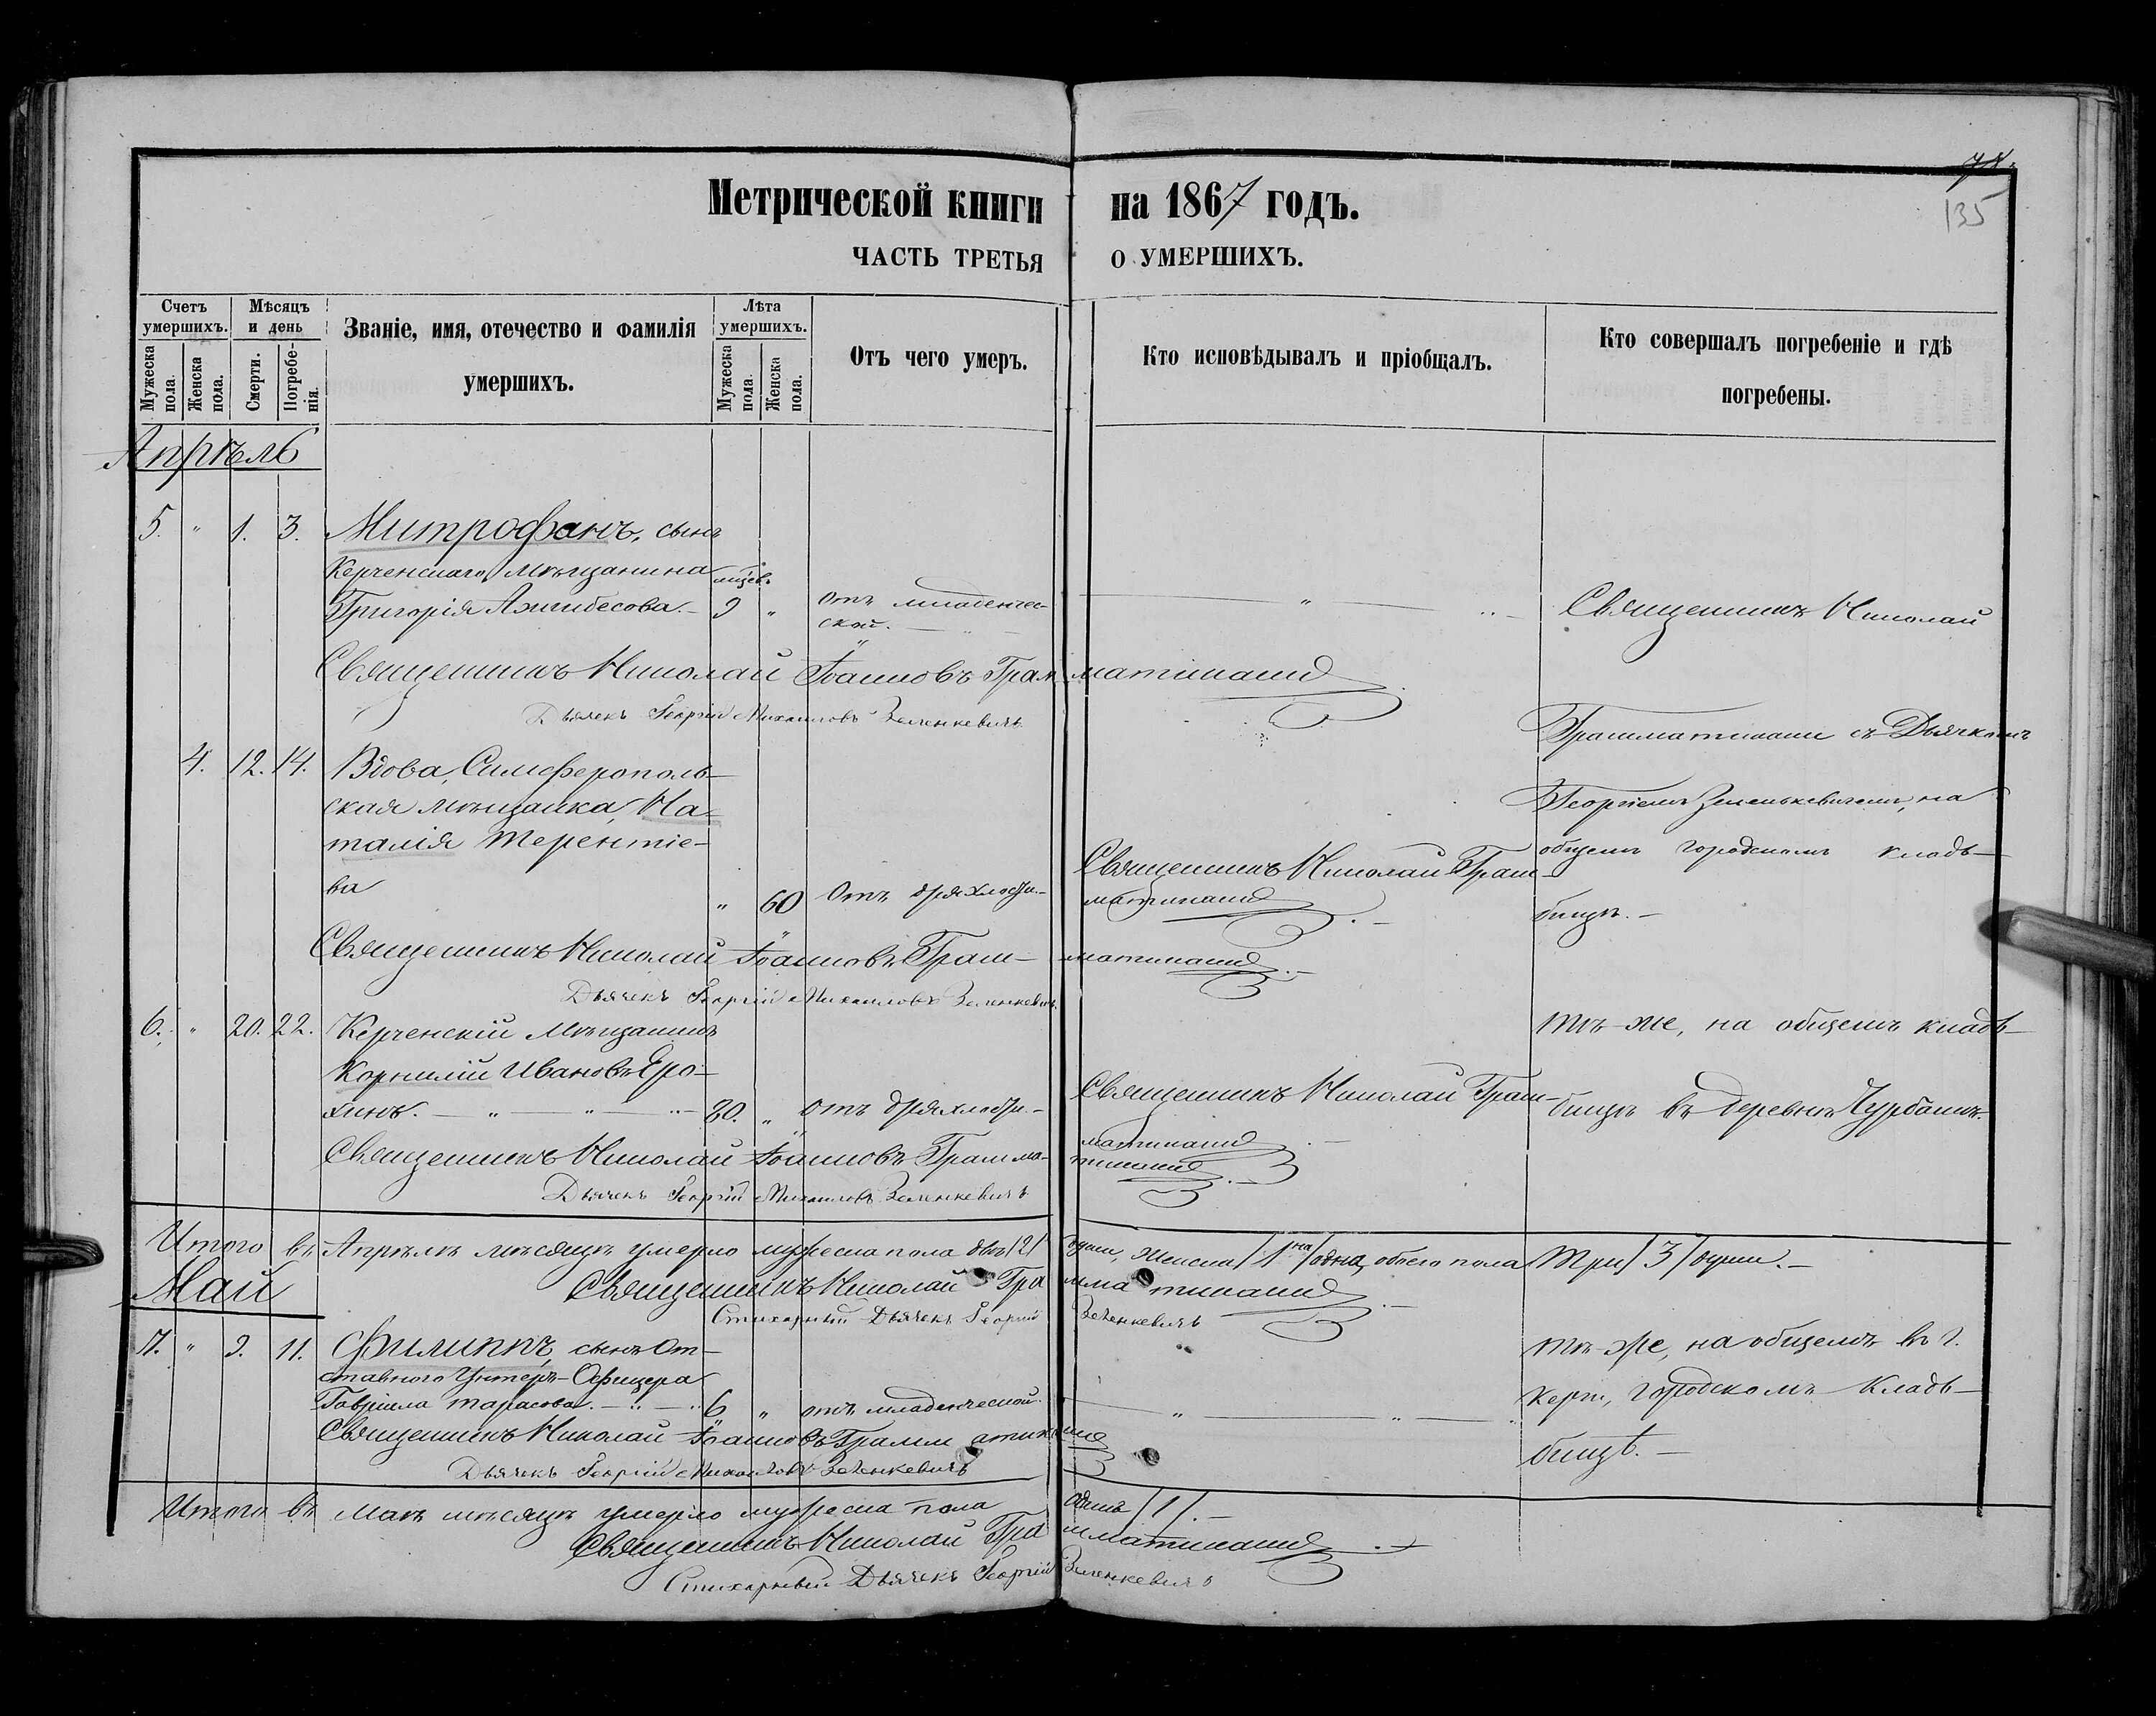 Метрической книги на 1867 годъ.
135
ЧАСТЬ ТРЕТЬЯ О УМЕРШИХЪ.
Счетъ умершихъ.
Мужеска пола.
Женска пола.
Мѣсяцъ и день
Смерти.
Погребенія.
Званіе, имя, отечество и фамилія умершихъ.
Лѣта умершихъ.
Мужеска пола.
Женска пола.
Отъ чего умеръ.
Кто исповѣдывалъ и пріобщалъ.
Кто совершалъ погребеніе и гдѣ погребены.
Апрѣль
5. " 1. 3. Митрофанъ, сынъ
Керченскаго мѣщанина
Григорія 9 " Отъ младенчес-
ской.
Священникъ Николай
Священникъ Николай Іоанновъ Грамматикаки
Дьячекъ Георгій Михаиловъ Зеленкевичъ
Грамматикаки съ Дьячкомъ
Георгіемъ Зеленькевичемъ, на
общемъ городскомъ кладъ-
бищѣ.-
4. 12. 14. Вдова, Симферополь-
ская мѣщанка, На-
талія Терентіе-
ва " 60 Отъ дряхлости.-
Священникъ Николай Грам-
матикаки
Священникъ Николай Іоанновъ Грам-матикаки.-
Дьячекъ Георгій Михаиловъ Зеленкевичъ
6. " 20. 22. Керченскій мѣщанинъ
Корнилій Ивановъ Еро-
хинъ. 80. " отъ дряхлости.-
Священникъ Николай Грам-
матикаки
Тѣ-же, на общемъ кладъ-
бищѣ въ деревнѣ Чурбашъ.
Священникъ Николай Іоанновъ Грамма-тикаки.-
Дьячекъ Георгій Михаиловъ Зеленкевичъ
Итого въ Апрѣлѣ мѣсяцѣ умерло мужеска пола двѣ /2/ души, женска /1на/ одна, обоего пола Три /3/ души.-
Священникъ Николай Грамматикаки
Стихарный Дьячекъ Георгій Зеленкевичъ
Май
7. " 9. 11. Филиппъ, сынъ От-
ставного Унтеръ-Офицера
Гавріила Тарасова. 6 " отъ младенческой.
Тѣ-же, на общемъ въ г.
Керчи, городскомъ Кладъ-
бищѣ.-
Священникъ Николай Іоанновъ Грамматикаки
Дьячекъ Георгій Михаиловъ Зеленкевичъ
Итого въ Маѣ мѣсяцѣ умерло мужеска пола одинъ /1/.-
Священникъ Николай Грамматикаки.-
Стихарный Дьячекъ Георгій Зеленкевичъ